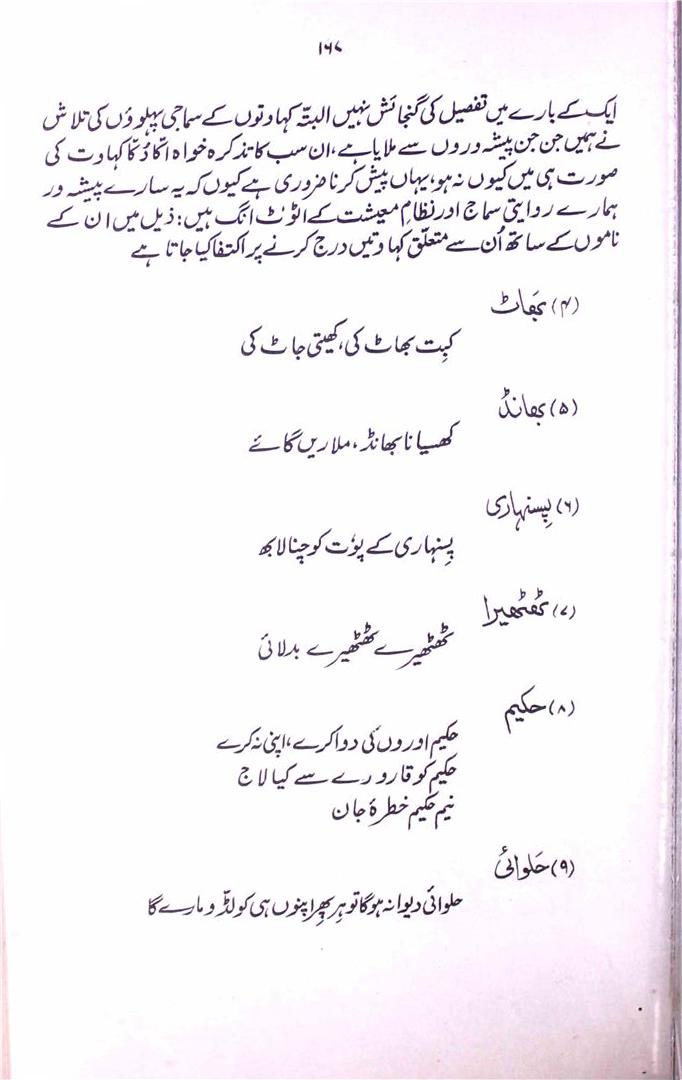 ۱۶۷
ایک کے بارے میں تفصیل کی گنجائش نہیں البتّہ کہاوتوں کے سماجی پہلوؤں کی تلاش
نے ہمیں جن جن پیشہ وروں سے ملایا ہے، ان سب کا تذکرہ خواہ اکّا دُکّا کہاوت کی
صورت ہی میں کیوں نہ ہو، یہاں پیش کرنا ضروری ہے کیوں کہ یہ سارے پیشہ ور
ہمارے روایتی سماج اور نظامِ معیشت کے اٹوٹ انگ ہیں: ذیل میں ان کے
ناموں کے ساتھ اُن سے متعلّق کہاوتیں درج کرنے پر اکتفا کیا جاتا ہے
(۴) بھَاٹ
کبِت بھاٹ کی، کھیتی جاٹ کی
(۵) بھانڈ
کھسیانا بھانڈ، ملاریں گائے
(۶) پِسنہاری
پِسنہاری کے پوُت کو چنا لابھ
(۷) ٹھٹھیرا
ٹھٹھیرے ٹھٹھیرے بدلائی
(۸) حکیم
حکیم اوروں کی دوا کرے، اپنی نہ کرے
حکیم کو قارورے سے کیا لاج
نیم حکیم خطرۂ جان
(۹) حَلوائی
حلوائی دیوانہ ہوگا تو ہِر پھِر اپنوں ہی کو لڈّو مارے گا